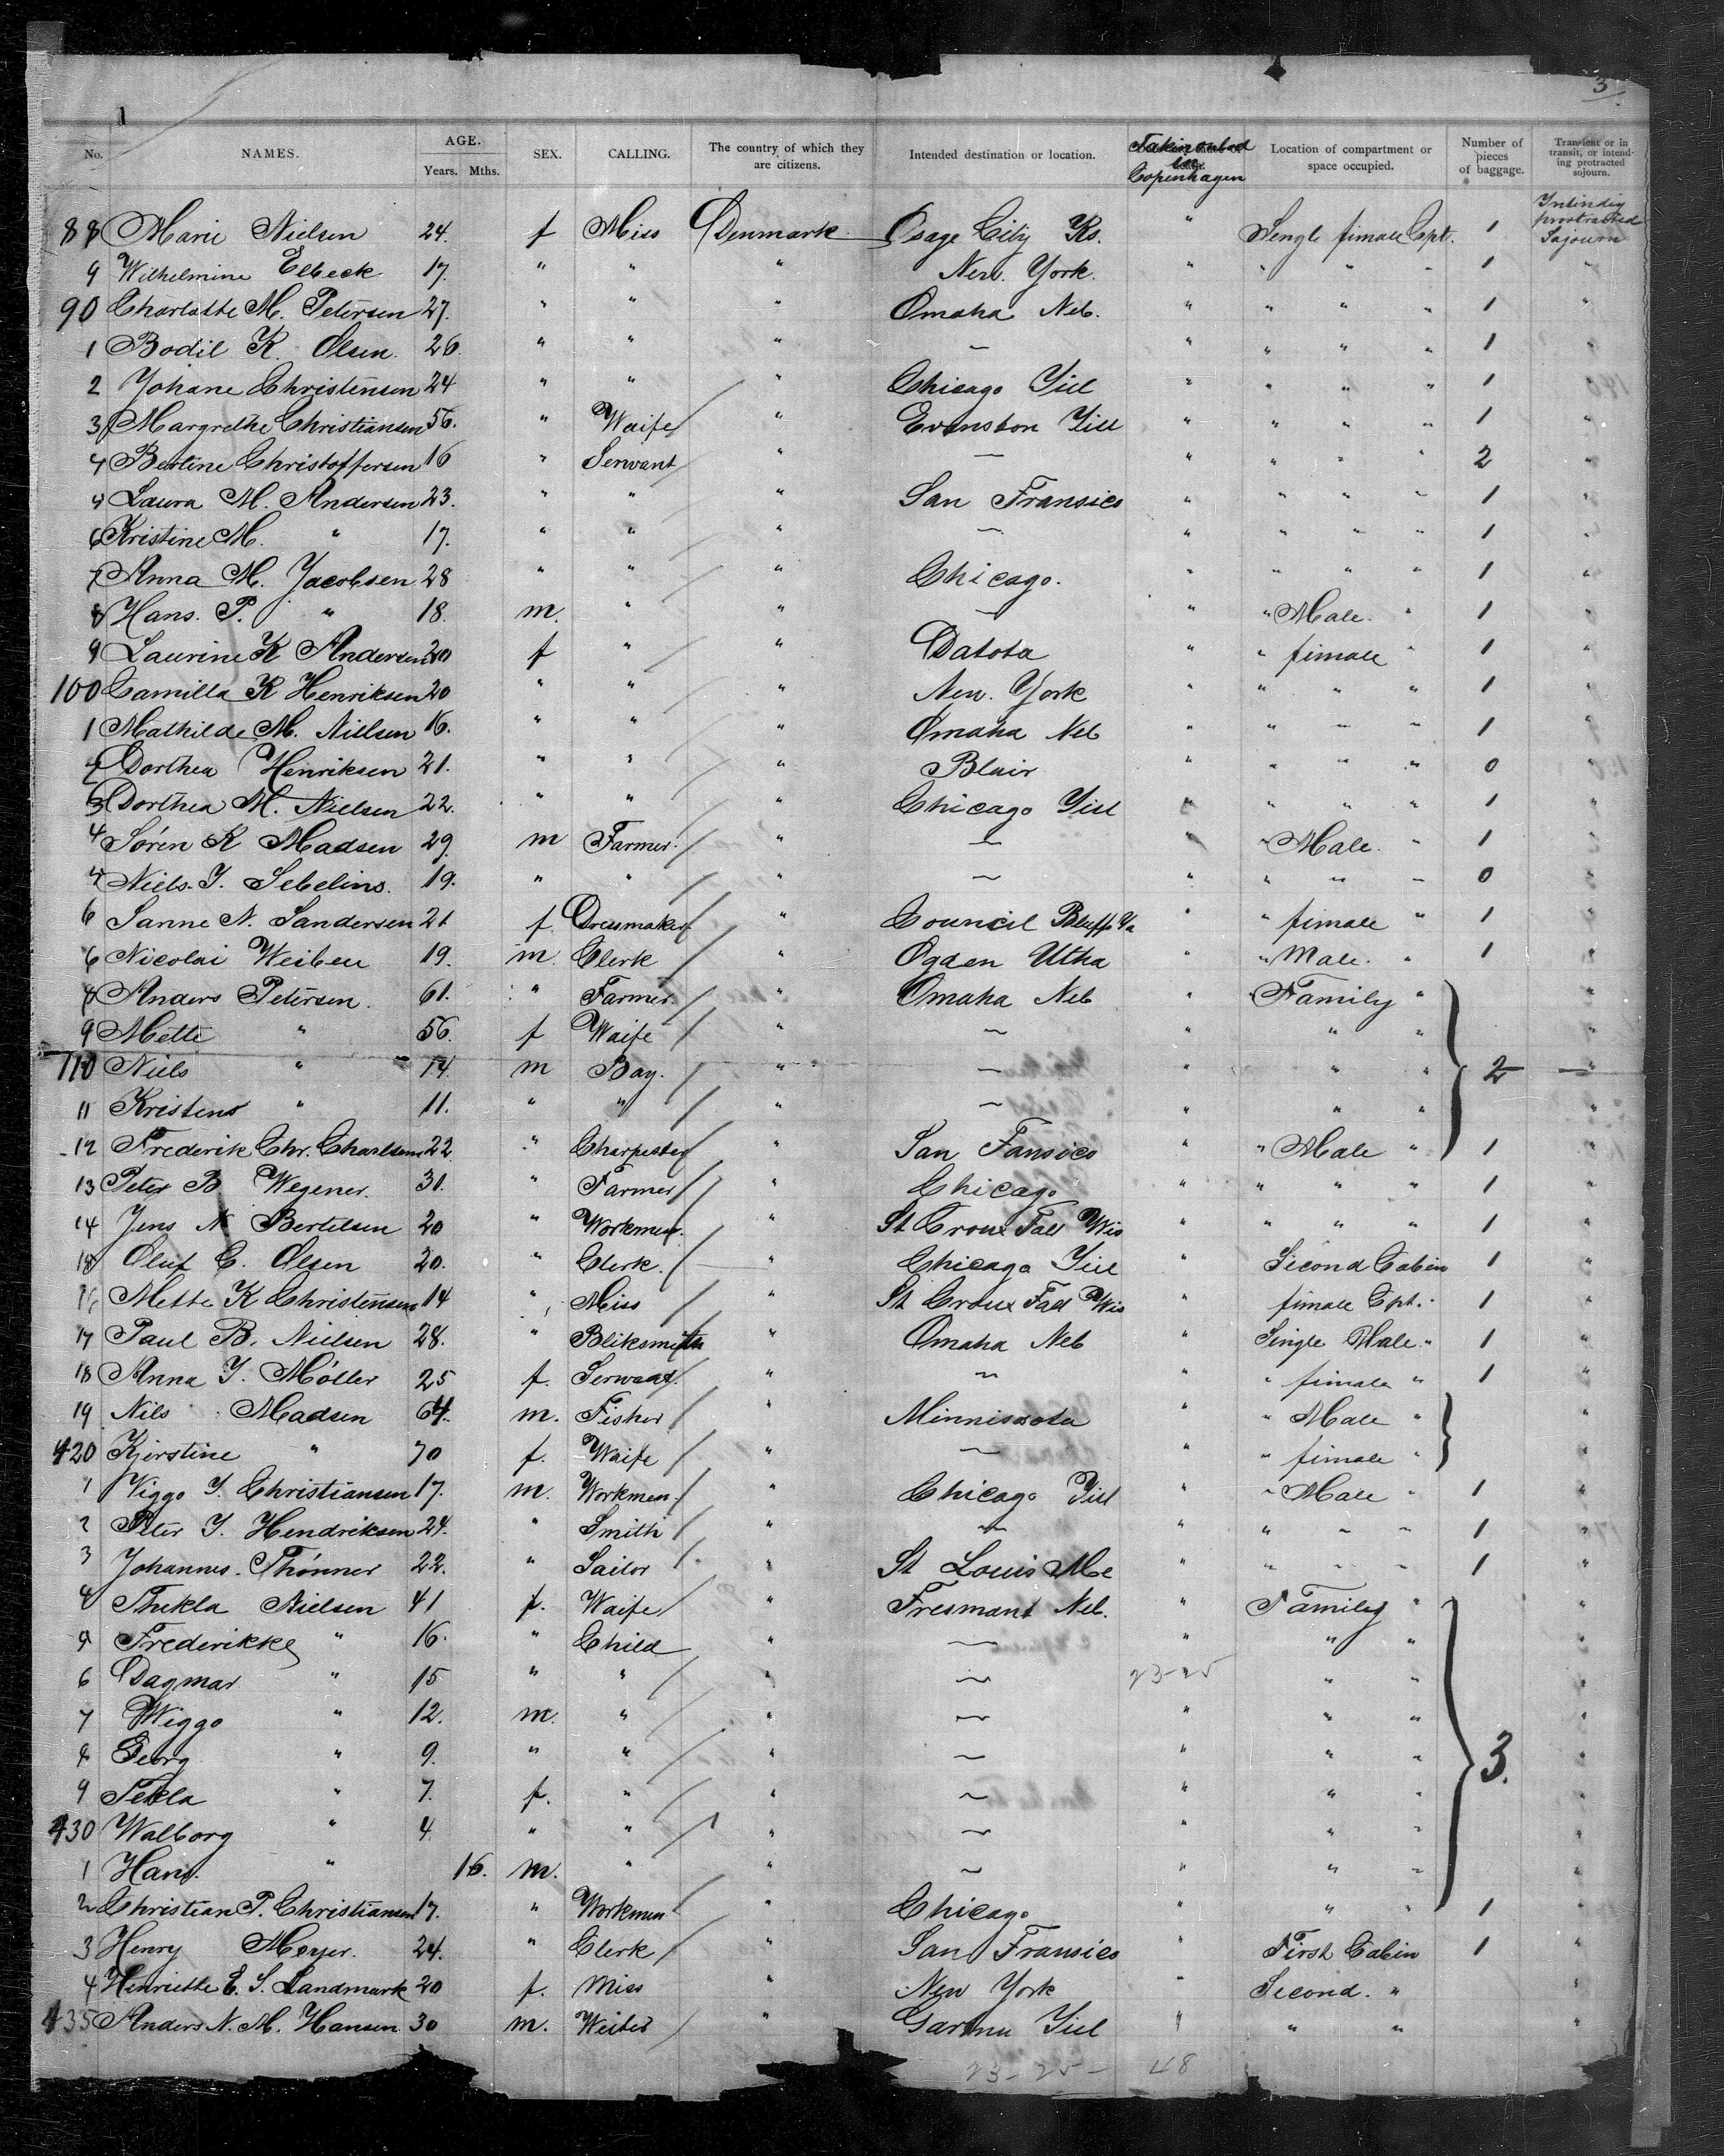 3
1
No. NAMES. AGE. Years. Mths. SEX. CALLING. The country of which they are citizens. Intended destination or location. Taking onbord Copenhagen Location of compartment or space occupied. Number of pieces of baggage. Transient or in transit, or intending protracted sojourn.
88 Marie Nielsen 24. f Miss Denmark Osage City Ks. " Single fimale Cpt. 1 Intindig prortracted Sajourn
9 Wilhelmine Elbeck 17. " " " New. York. " " " " 1 "
90 Charlotte M. Petersen 27. " " " Omaha Neb. " " " " 1 "
1 Bodil K. Olsen. 26 " " " — " " " " 1 "
2 Johane Christensen 24 " " " Chicago Yill " " " " 1 "
3 Margrethe Christiansen 56. " Waife " Evenston Yill " " " " 1 "
4 Bertine Christoffersen 16 " Servant " — " " " " 2 "
Laura M. Andersen 23. " " " San Fransico " " " " 1 "
6 Kristine M. " 17. " " " — " " " " 1 "
7 Anna M. Jacobsen 28 " " " Chicago. " " " " 1 "
8 Hans. P. " 18. m. " " — " " Male. " 1 "
9 Laurine K Andersen 20 f " " Datota " " fimale " 1 "
100 Camilla K Henriksen 20 " " " New. York " " " " 1 "
1 Mathilde M. Nillsen 16. " " " Omaha Neb " " " " 1 "
2 Dorthea Henriksen 21. " " " Blair " " " " 0 "
3 Dorthea M. Nielsen 22. " " " Chicago Yill " " " " 1 "
4 Sören K Madsen 29. m Farmer. " — " " Male. " 1 "
Niels. J. Sebelins. 19. " " " — " " " " 0 "
6 Sanne N. Sandersen 21 f. Dressmaker " Council Bluffs Ya " " fimale " 1 "
Nicolai Weibeu 19. m. Clerk " Ogden Utha " " Male. " 1 "
8 Anders Petersen. 61. " Farmer. " Omaha Neb " Family " "
9 Mette " 56. f Waife " — " " " "
110 Niels " 14. m Bay. " — " " " 2 "
11 Kristens " 11. " " " — " " " "
12 Frederik Chr. Charlsens 22 " Charpester " San Fansico " " Male " 1 "
13 Peter B. Wegener. 31. " Farmer " Chicago " " " " 1 "
14 Jens N Bertelsen 20 " Workmen. " St Croux Fall Wis " " " " 1 "
Oluf C. Olsen 20. " Clerk. " Chicago Yill " Second Cabin 1 "
Mette K Christensen 14 " Miss " St Croux Fall Wis " fimale Cpt. 1 "
17 Paul B. Nielsen 28. " Bliksmith " Omaha Neb " Single Male " 1 "
18 Anna J. Möller 25 f. Servant. " — " " fimale " 1 "
19 Nils Madsen 64. m. Fisher " Minnissota " " Male " "
420 Kjerstine " 70 f. Waife " — " " fimale " "
1 Viggo J. Christiansen 17. m. Workmen. " Chicago Yill " " Male " 1 "
2 Peter J. Hendriksen 24. " Smith " — " " " " 1 "
3 Johannes. Thönner 22. " Sailor " St Louis Mo " " " " 1 "
4 Thekla Nielsen 41 f. Waife " Fresmont Neb. " Family " "
Frederikke " 16. " Child " — " " " "
6 Dagmar " 15 " " " — 23-25 " " "
7 Wiggo " 12. m. " " — " " " "
8 Georg " 9. " " " — " " " 3. "
9 Tekla " 7. f. " " — " " " "
430 Walborg " 4. " " " — " " " "
1 Hans. " 16. m. " " — " " " "
2 Christian P. Christiansen 17. " Workmen " Chicago " " " 1 "
3 Henry Meyer. 24. " Clerk " San Fransico " First Cabin 1 "
4 Henriette E. S. Landmark 20 f. Miss " New York " Second. " "
435 Anders N. M. Hansen 30 m. Weiter " Garmu Yill " " " "
23-25- 48